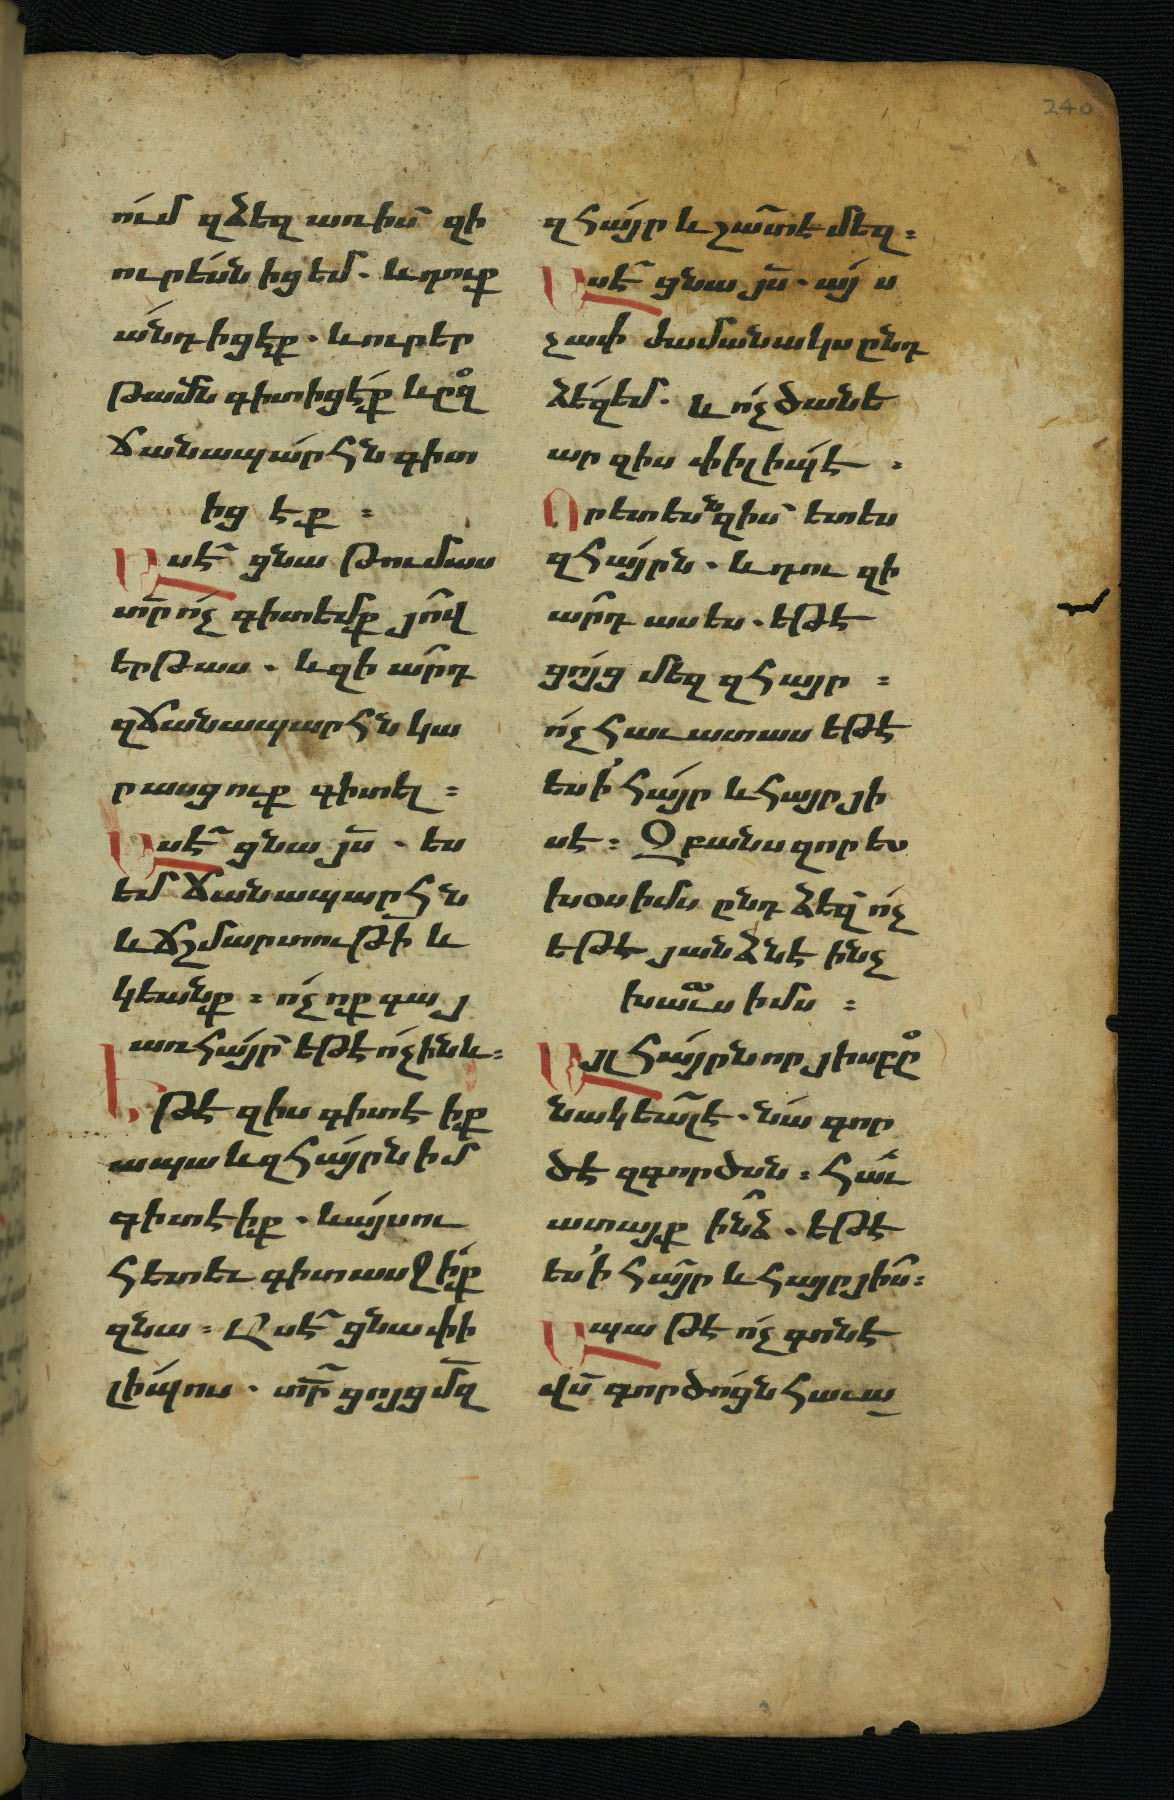 240
ում զձեզ առ իս՝ զի
ուր ես՛ն իցեմ. և դուք
անդ իցէք. և ուր եր
թամն գիտիցէք և ըզ
ճանապարհն գիտ
իցէք :
Ասէ ցնա Թումաս
տր ոչ գիտեմք յով
երթաս. և զի արդ
զճանապարհն կա
րասցուք գիտել :
Ասէ ցնա յս. ես
եմ ճանապարհն
և ճշմարտութի և
կեանք : ոչ ոք գայ
առ հայր եթէ ոչ ինև :
Եթէ զիս գիտէիք
ապա և զհայրն իմ
գիտէիք. և այսու
հետև գիտասջիք
զնա : Ասէ ցնա փի
լիպոս. տր ցոյց մզ
զհայր և շատ է մեզ :
Ասէ ցնա յս. այս
չափ ժամանակս ընդ
ձեզ եմ. և ոչ ծանե
ար զիս փիլիպէ :
Որ ետես զիս՝ ետես
զհայրն. և դու զի
արդ ասես. եթէ
ցոյց մեզ զհայր :
ոչ հաւատաս եթէ
ես ի հայր և հայր յի
ս է : Զբանս զոր ես
խօսիմս ընդ ձեզ՝ ոչ
եթէ յանձնէ ինչ
խաւսիմս :
Այլ հայրն որ յիս բը
նակեալ է. նա գոր
ծէ զգործսն : հաւ
ատայք ինձ. եթէ
ես ի հայր և հայր յիս :
Ապա թէ ոչ գոնէ
վս գործոցն հաւա